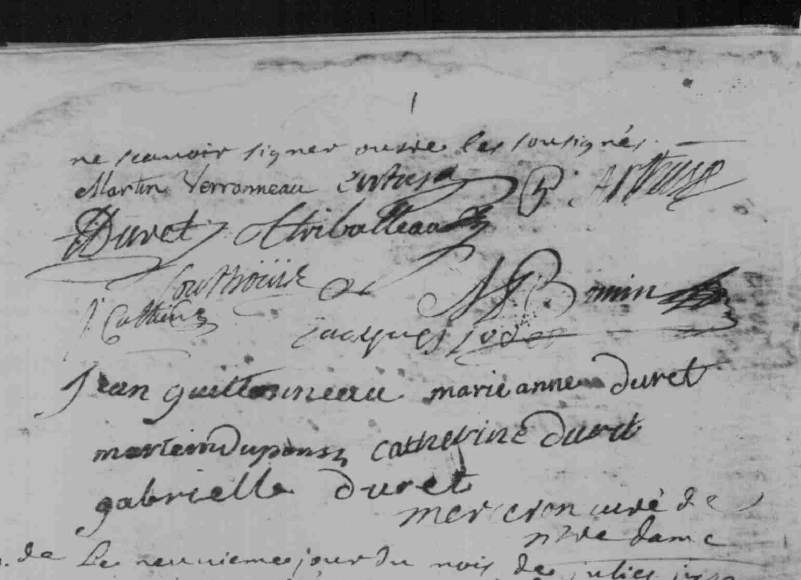 ne scavoir signer outre les sousignés.
Martin Verronneau P. Arthuse
Duret Thriballeau
Couthouise M. Bonnin
jacques
jean guillonneau marie anne duret
martin dupons catherine duret
gabrielle duret
merceron curé de
nstre dame
de Le neuvieme jour du mois de